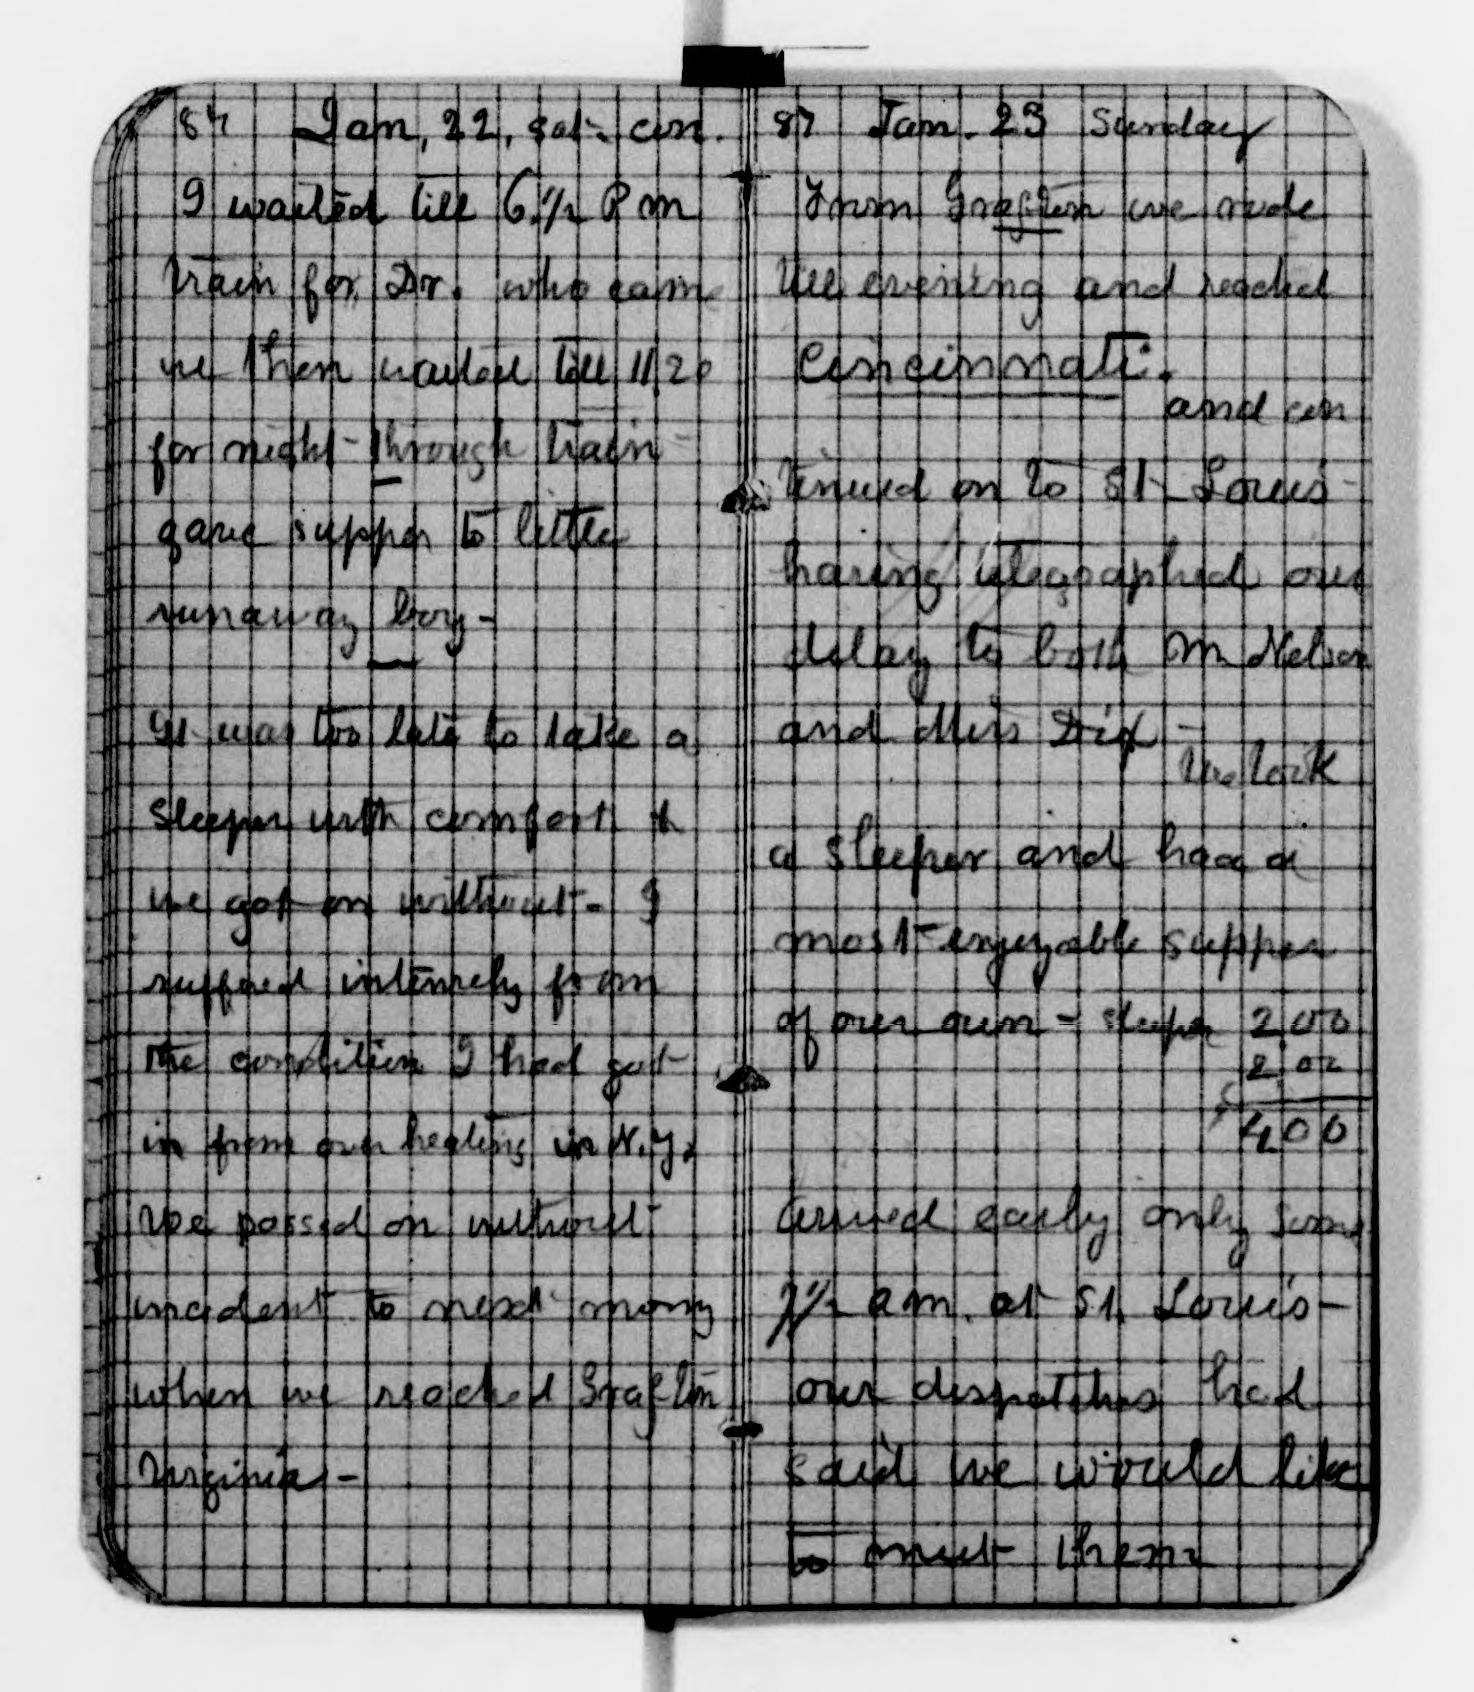 87 Jan, 22, Sat. con.
I waited till 6.½ P m
train for Dr. who came
we then waited till 11,20
for night - through train -
gave supper to little
runaway boy -
It was too late to take a
sleeper with comfort &
we got on without - I
suffered intensely from
the condition I had got
in from over heating in N.Y.
We passed on without
incident to next morng
when we reached Grafton
Virginia -
87 Jan. 23 Sunday
From Grafton we rode
till evening and reached
Cincinnati.
and con
tinued on to St. Louis -
having telegraphed our
delay to both Mr Nelson
and Miss Dix -
We took
a sleeper and had a
most enjoyable supper
of our own - sleeper 2,00
2,00
400
Arrived early only some
7½ a m. at St. Louis -
our dispatches had
said we would like
to meet them